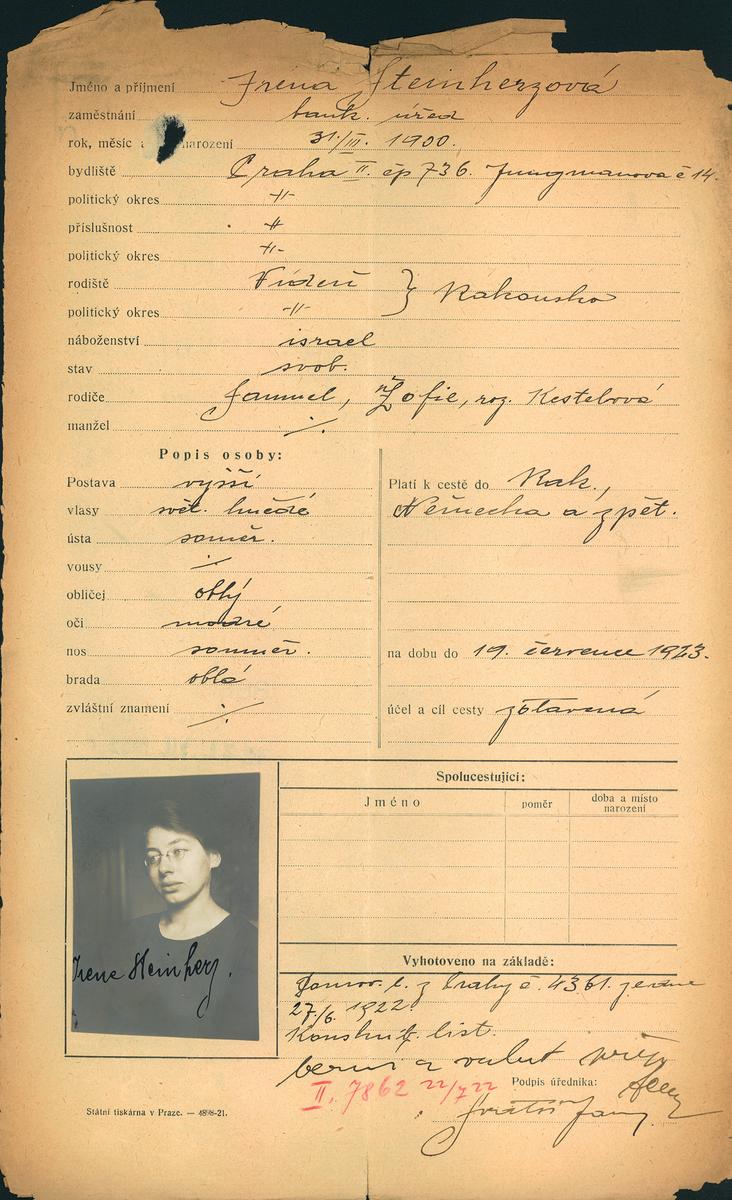 Jméno a příjmení Irena Steinherzová
zaměstnání bank. úřed
rok, měsíc a narození 31./III. 1900.
bydliště Praha II. čp 736. Jungmanova č 14.
politický okres -"-
příslušnost -"-
politický okres -"-
rodiště Vídeň } Rakousko
politický okres -"-
náboženství israel
stav svob.
rodiče Samuel, Žofie, roz. Kestlová
manžel ·/.
Popis osoby:
Postava vyšší
vlasy svět. hnědé
ústa souměr.
vousy ·/.
obličej oblý
oči modré
nos souměr.
brada oblá
zvláštní znamení ·/.
Platí k cestě do Rak.,
Německa a zpět.
na dobu do 19. července 1923.
účel a cíl cesty zotavená
Spolucestující:
Jméno poměr doba a místo narození
Irene Steinherz.
Vyhotoveno na základě:
Domov. l. z Prahy č. 4361. ze dne
27/6. 1922.
list.
berní a valut
II. 7862 22/7 22
Podpis úředníka:
Státní tiskárna v Praze. — 4898-21.